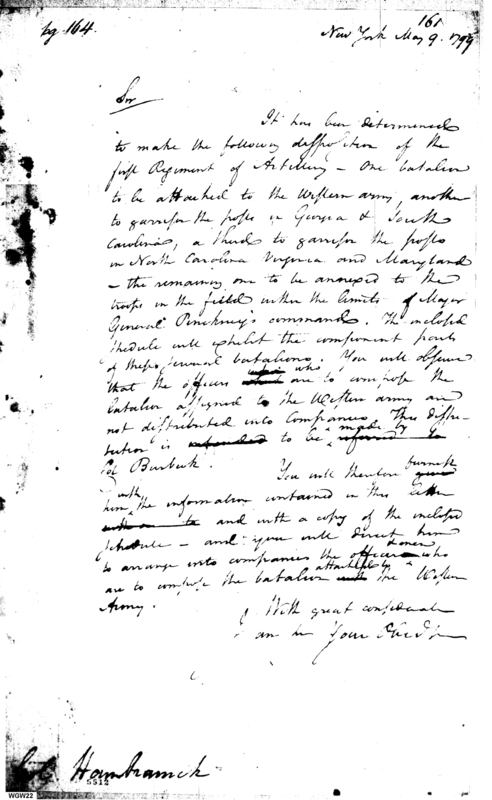 pg. 164.
161
New York May 9. 1799
Sir
It has been determined
to make the following disposition of the
first Regiment of Artillery - One batalion
to be attached to the Western army, another
to garrison the posts in Georgia & South
Carolina, a third to garrison the posts
in North Carolina Virginia and Maryland
- the remaining one to be annexed to the
troops in the field within the limits of Major
General Pinckney's command. The inclosed
schedule will exhibit the component parts
of these several batalions. You will observe
that the officers who are to compose the
batalion assigned to the Western army are
not distributed into Companies. This distri-
bution is intended to be made by referred to
Col Burbeck.
You will therefore furnish
him with the information contained in this letter
and with a copy of the inclosed
schedule - and you will direct him
to arrange into companies the officers who
are to compose the batalion attached to the Western
Army.
With great consideration
I am Sir Your Obed
Col. Hambranck
5512
WGW22